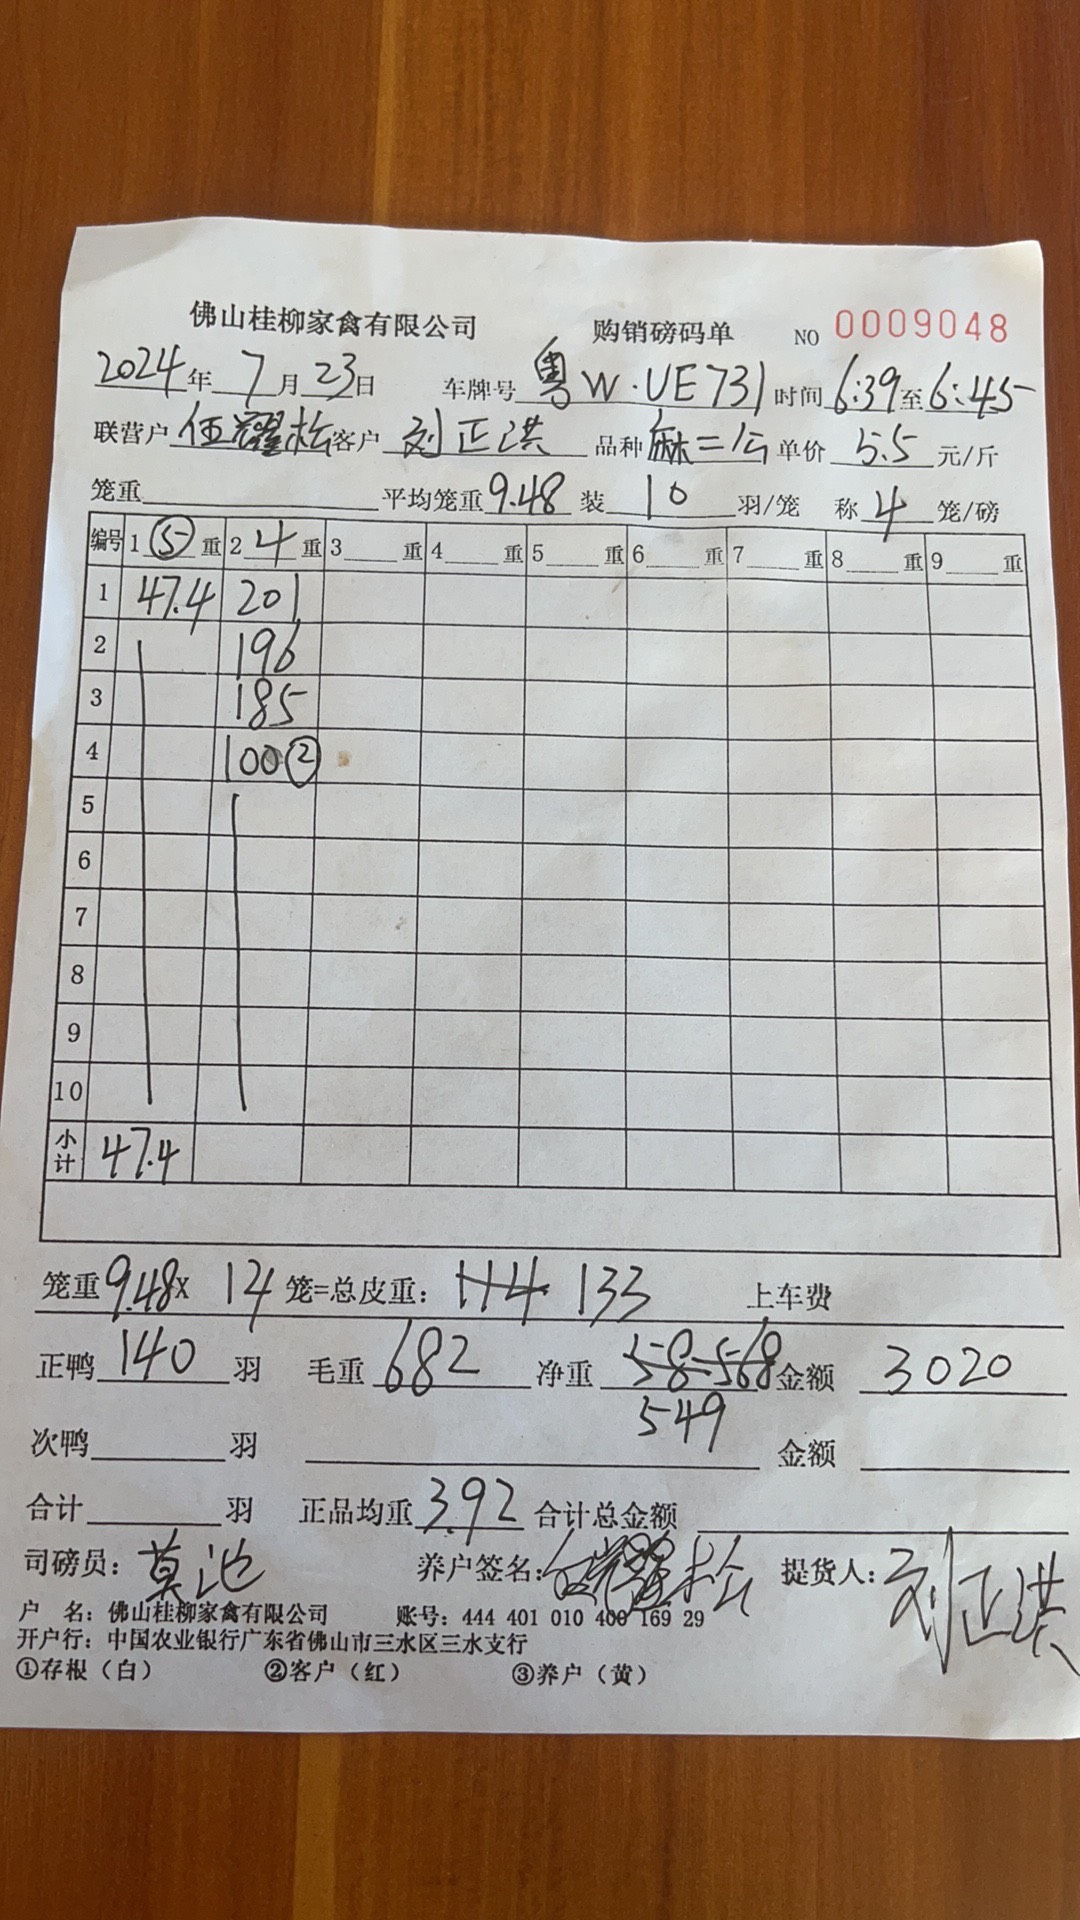 佛山桂柳家禽有限公司 购销磅码单 NO 0009048
2024年7月23日 车牌号 粤W·UE731 时间 6:39至6:45
联营户 伍耀松 客户 刘正洪 品种 麻二公 单价 5.5 元/斤
笼重 平均笼重 9.48 装 10 羽/笼 称 4 笼/磅
编号 1 ⑤ 重 2 4 重 3 重 4 重 5 重 6 重 7 重 8 重 9 重
1 47.4 201
2 196
3 185
4 100 ②
5
6
7
8
9
10
小计 47.4
笼重 9.48 X 14 笼=总皮重: 114 133 上车费
正鸭 140 羽 毛重 682 净重 58 568 金额 3020
549
次鸭 羽 金额
合计 羽 正品均重 3.92 合计总金额
司磅员: 莫池 养户签名: 伍耀松 提货人: 刘正洪
户 名: 佛山桂柳家禽有限公司 账号: 444 401 010 400 169 29
开户行: 中国农业银行广东省佛山市三水区三水支行
①存根(白) ②客户(红) ③养户(黄)